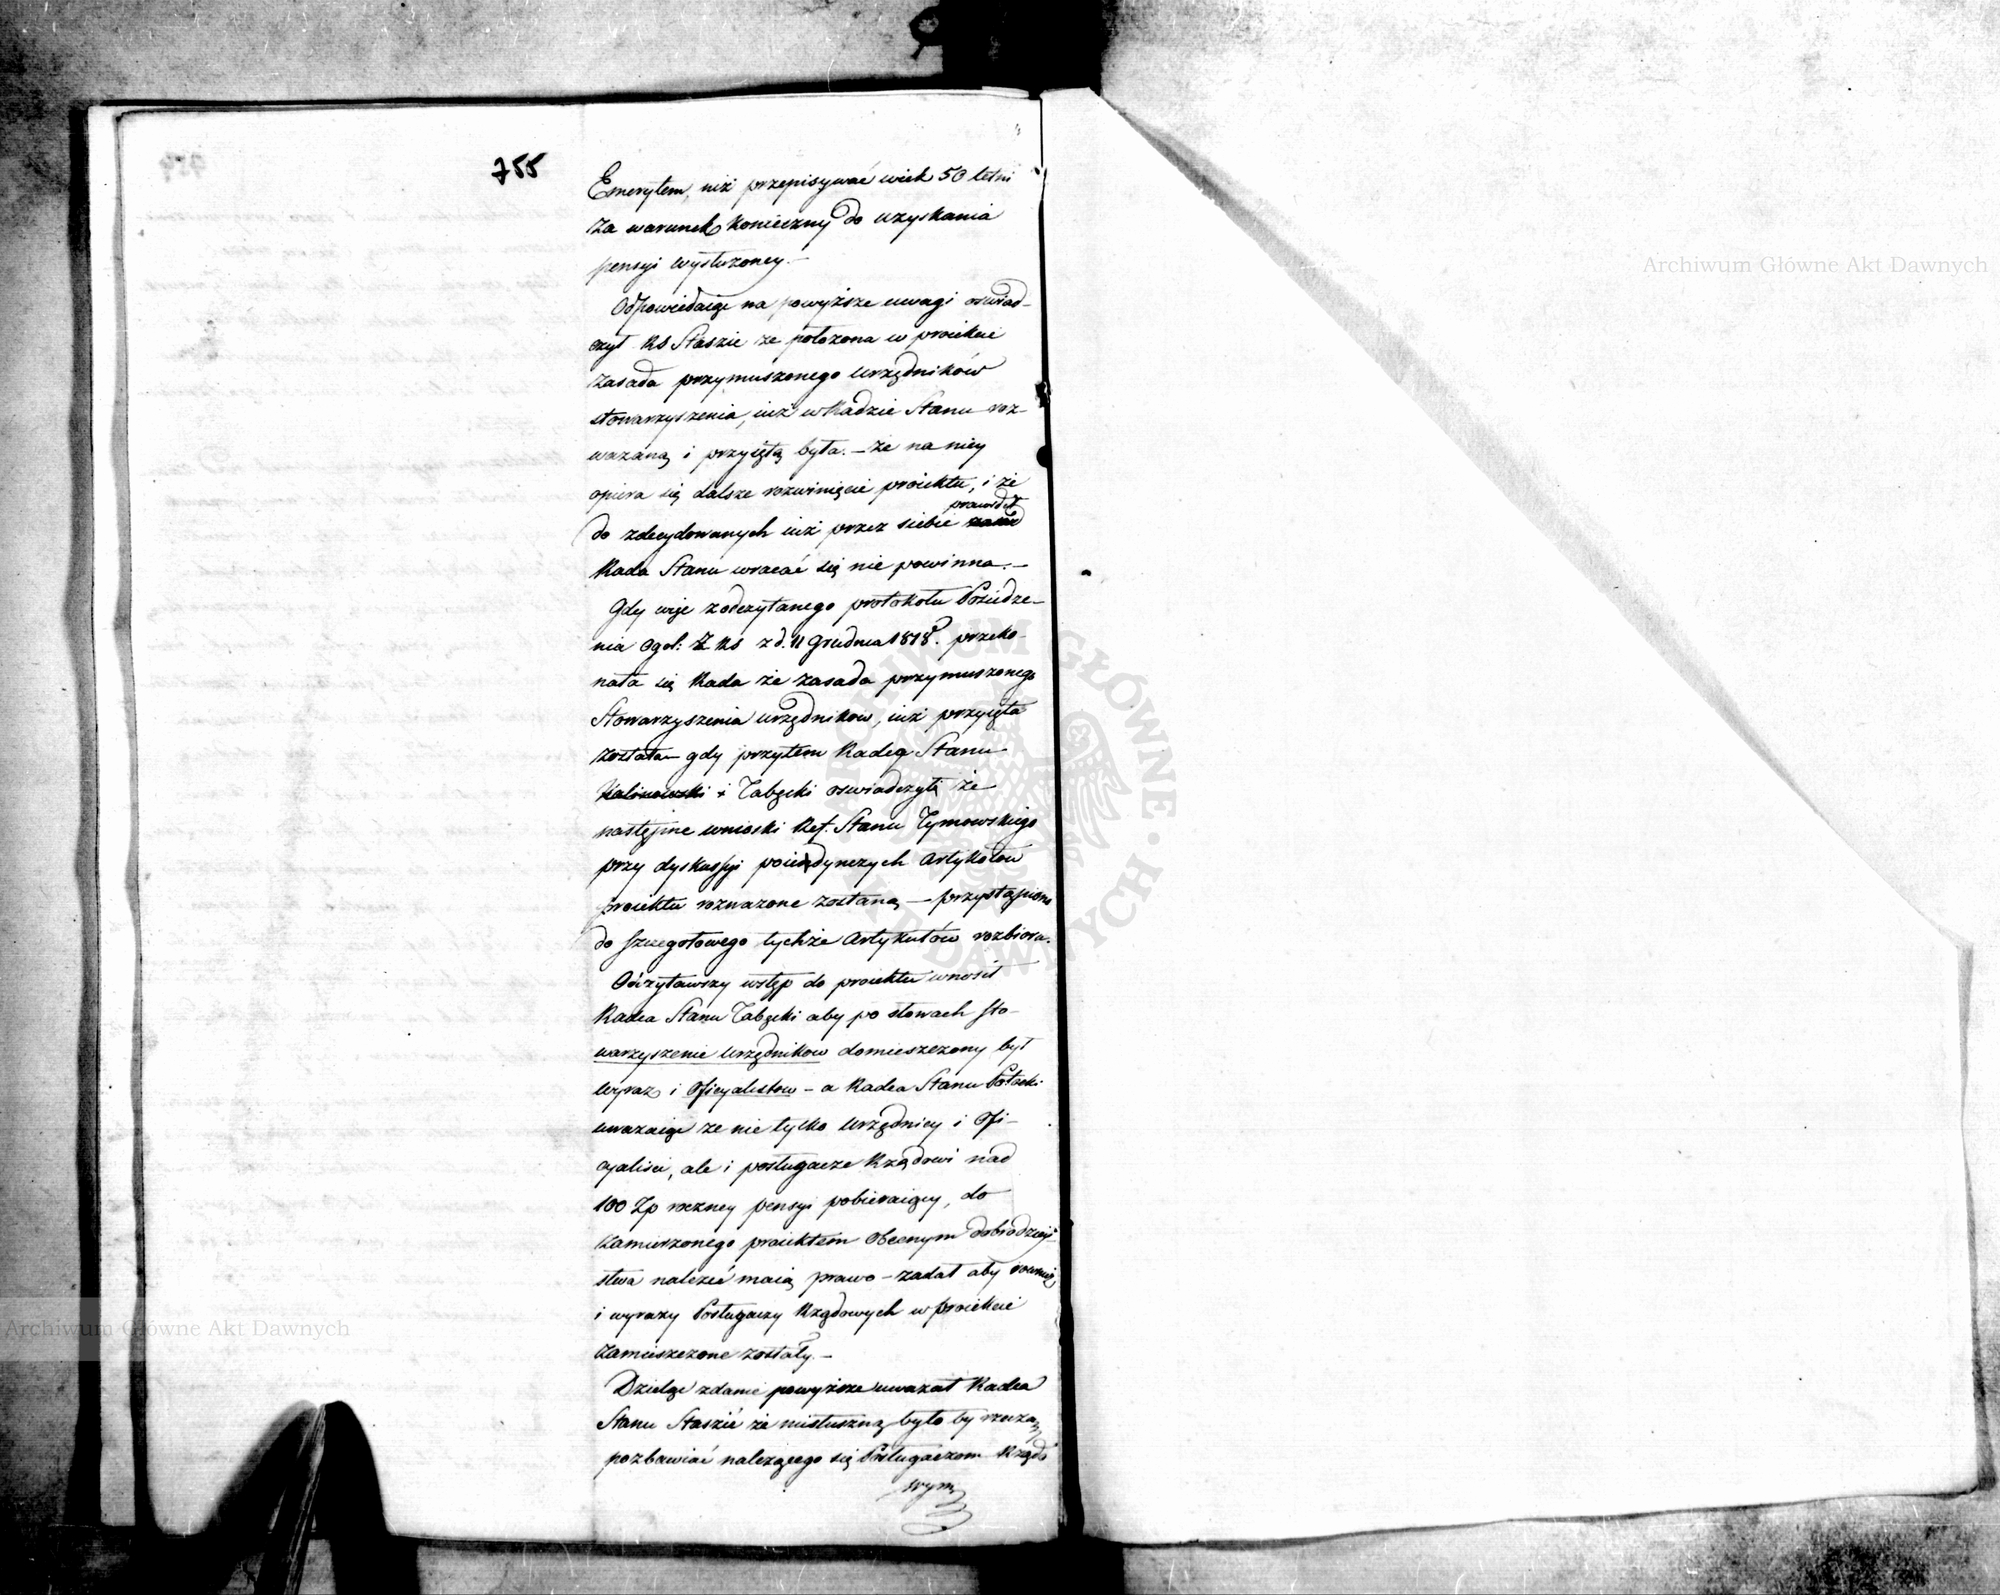 755
Emerytem, niż przepisywać wiek 50 letni
za warunek konieczny do uzyskania
pensyi wysłużoney.—
Odpowiedaiąc na powyższe uwagi oswiad-
czył KS Staszic ze położona w proiekcie
zasada przymuszonego urzędników
stowarzyszenia, iuż w Radzie Stanu roz-
ważaną i przyiętą była.— że na niey
opiera się dalsze rozwinięcie proiektu, i że
prawideł
do zdecydowanych iuż przez siebie zasad
Rada Stanu wracać się nie powinna.—
Gdy więc z odczytanego protokołu Posiedze-
nia Ogol: Z RS z d. 11 Grudnia 1818. przeko-
nała się Rada że zasada przymuszonego
Stowarzyszenia urzędnikow, iuż przyięta
została— gdy przytem Radcy Stanu
Kalinowski i Tabęcki oswiadczyli że
następne wnioski Ref. Stanu Tymowskiego
przy dyskussyi poiedynczych Artykołow
proiektu rozważone zostaną — przystąpiono
do szczegołowego tychże Artykułów rozbioru.
Odczytawszy wstęp do proiektu wnosił
Radca Stanu Tabęcki aby po słowach sto-
warzyszenie urzędnikow domieszczony był
wyraz i Oficyalistow — a Radca Stanu Potocki
uważaiąc że nie tylko urzędnicy i Ofi-
cyaliści, ale i posługacze Rządowi nad
100 Zp roczney pensyi pobieraiący, do
zamierzonego proiektem Obecnym dobrodziey-
stwa należeć maią prawo — żądał aby rownież
i wyrazy Posługaczy Rządowych w proiekcie
zamieszczone zostały.—
Dzieląc zdanie powyższe uważał Radca
Stanu Staszic że niesłuszną było by rzeczą
pozbawiać należącego się Posługaczom Rządo
wym
Archiwum Główne Akt Dawnych
Archiwum Główne Akt Dawnych
ARCHIWUM GŁÓWNE AKT DAWNYCH